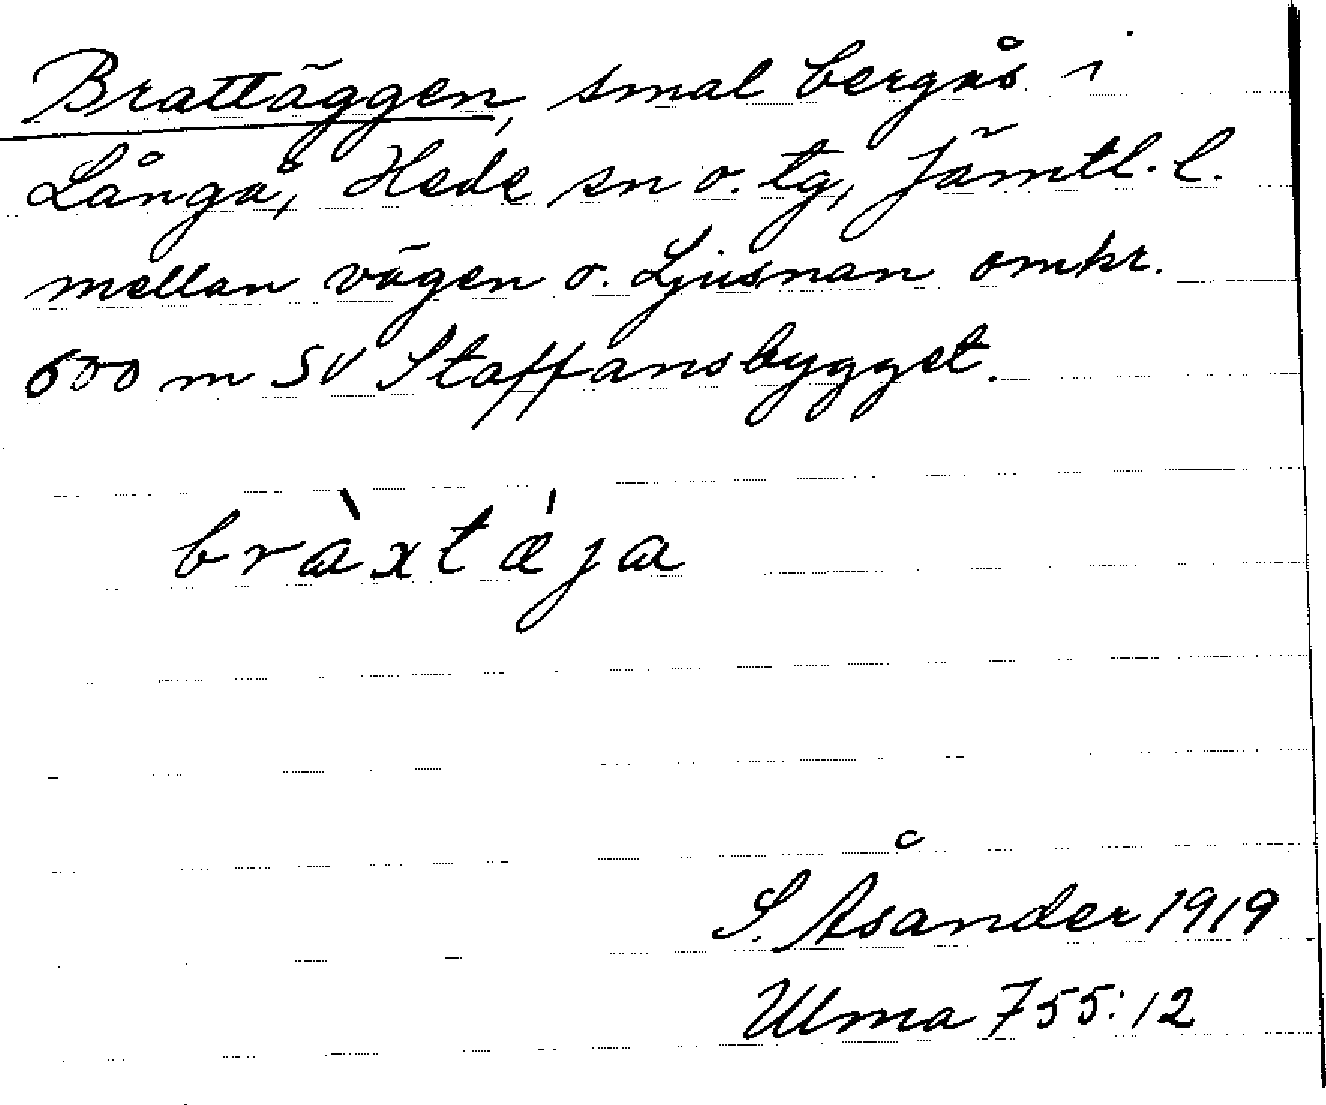 Brattäggen, smal bergås i
Långå, Hede sn o. tg, Jämtl. l.
mellan vägen o. Ljusnan omkr.
600 m SV Staffansbygget.
bràxtǽja
S. Åsander 1919
Ulma 755:12